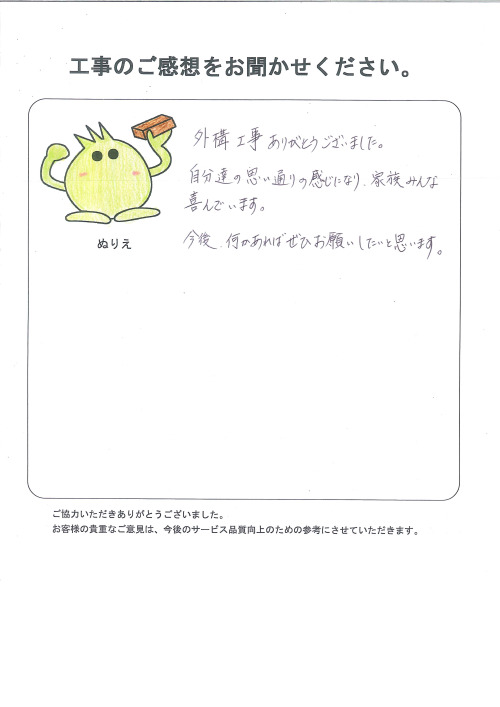 工事のご感想をお聞かせください。
外構工事ありがとうございました。
自分達の思い通りの感じになり、家族みんな
喜んでいます。
ぬりえ
今後、何かあればぜひお願いしたいと思います。
ご協力いただきありがとうございました。
お客様の貴重なご意見は、今後のサービス品質向上のための参考にさせていただきます。